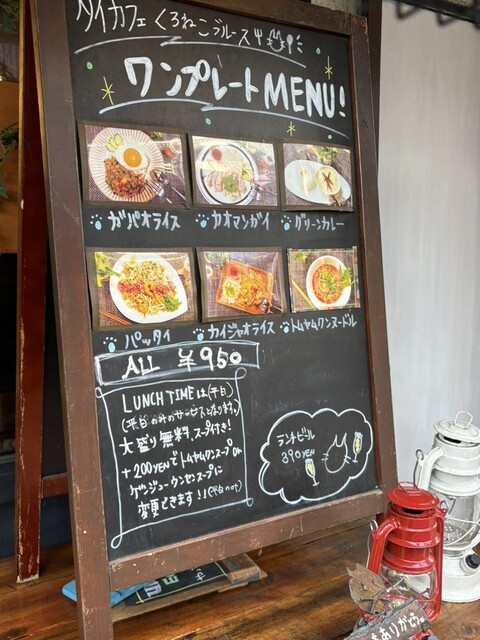 タイカフェくろねこブルース
ワンプレートMENU!
ガパオライス カオマンガイ グリーンカレー
パッタイ カイジャオライス トムヤムクンヌードル
ALL ¥950
LUNCH TIMEは(平日)
(平日のみのサービスとなります。)
大盛り無料、スープ付き!
+200YENでトムヤムクンスープor
ゲンジューウンセンスープに
変更できます!!(平日only)
ランチビール
390YEN
ありがとう。